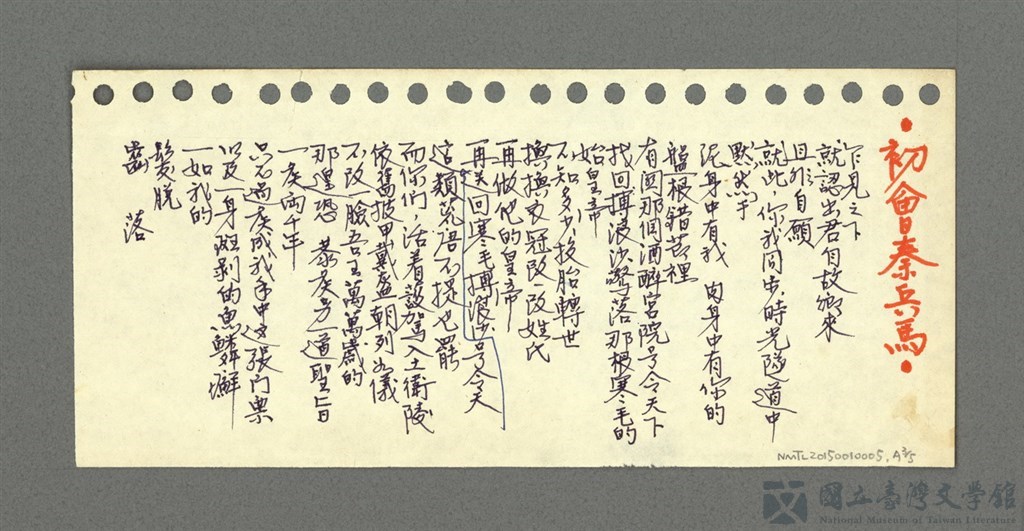 •初會秦兵馬•
乍見之下
就認出君自故鄉來
且形自顧
就此 你我同步,時光隧道中
默然于
泥身中有我 肉身中有你的
盤根錯芸裡
有回那個酒醉宮院号令天下
找回搏浪沙驚落那根寒毛的
始皇帝
不知多少,投胎轉世
換換衣冠改改姓氏
再做他的皇帝
再失回寒毛搏浪沙号令天
這類荒唐不提也罷
而你們,活着設駕入土衛陵
依舊披甲戴盔朝列如儀
不改臉吾王萬萬歲的
那遑恐 恭矣另一道聖旨
一矣兩千年
只不過矣成我手中這張門票
以及一身斑剝的魚鱗癬
一如我的
髮脫
齒 落
NMTL20150010005, A 3/5
國立臺灣文學館
National Museum of Taiwan Literature